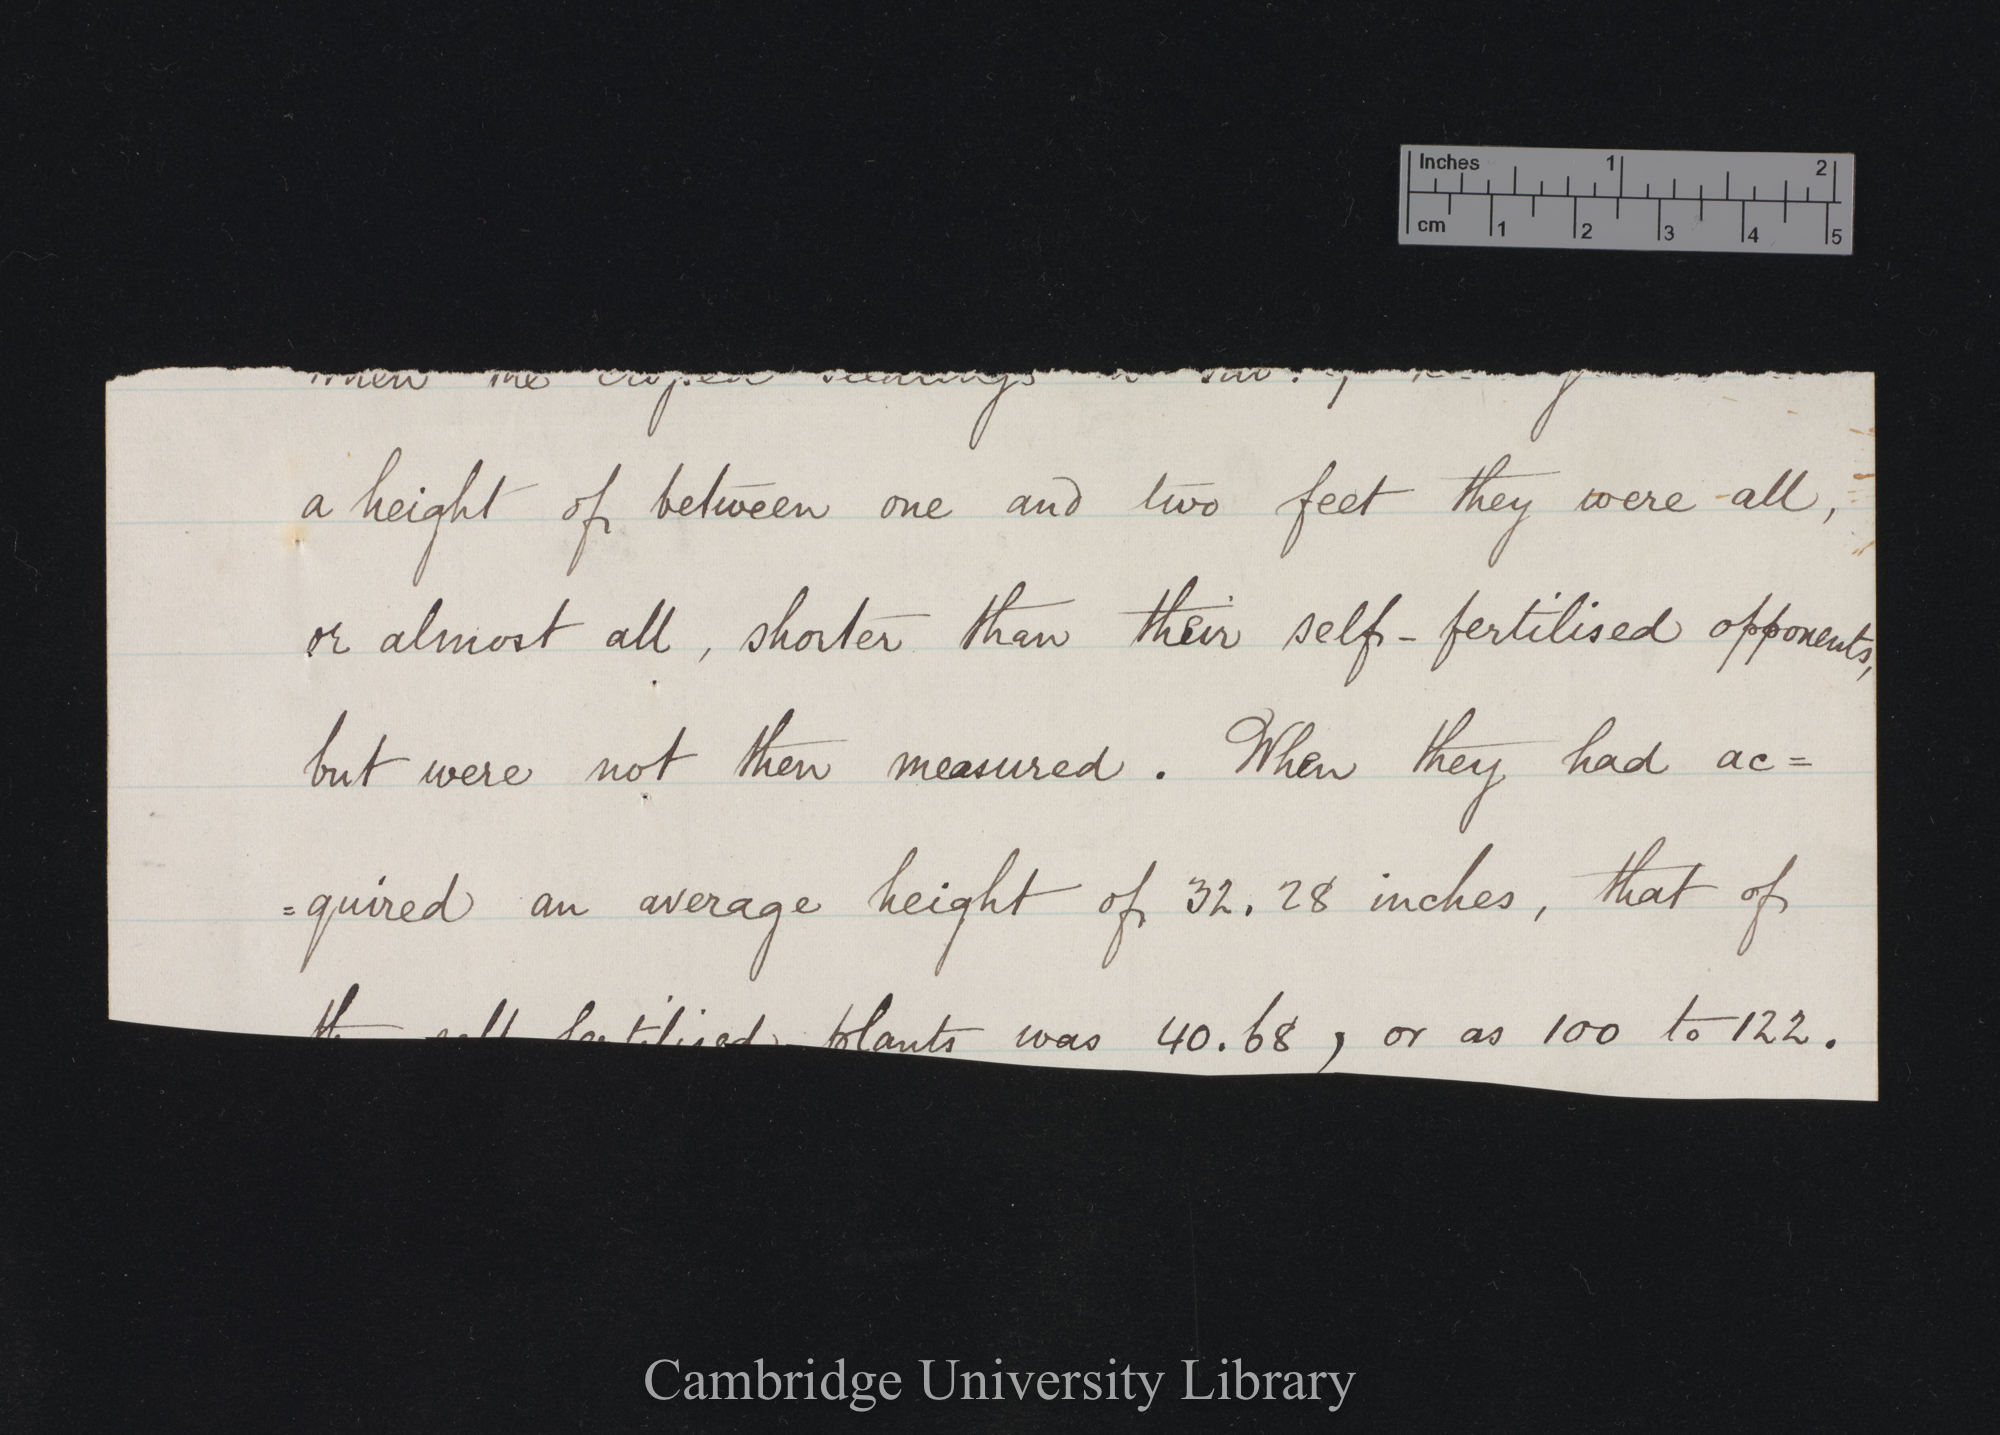 Inches 1 2
cm 1 2 3 4 5
When the crossed seedlings
a height of between one and two feet they were all,
or almost all, shorter than their self-fertilised opponents,
but were not then measured. When they had ac=
=quired an average height of 32.28 inches, that of
the self fertilised plants was 40.68, or as 100 to 122.
Cambridge University Library